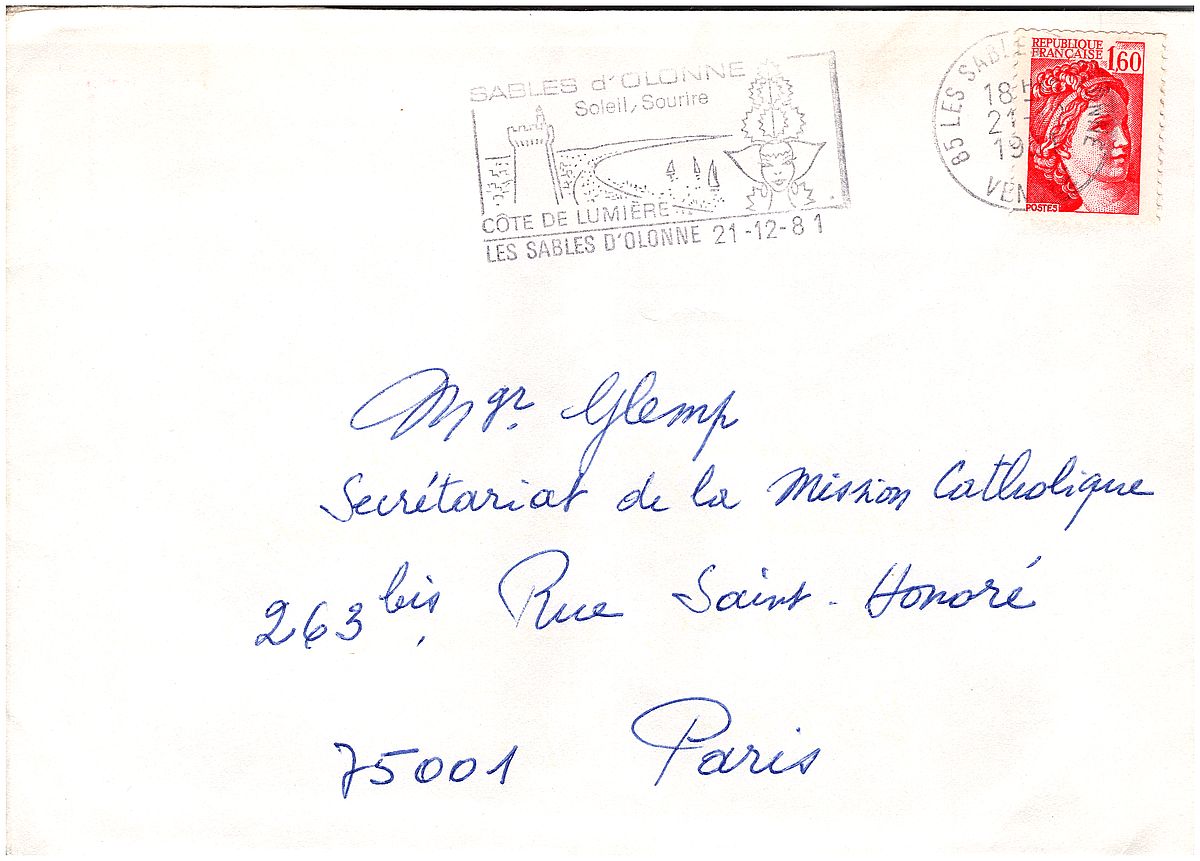 SABLES d'OLONNE
Soleil, Sourire
CÔTE DE LUMIÈRE
LES SABLES D'OLONNE 21-12-81
85 LES SABLE
18 H
21-
19
VEN
REPUBLIQUE
FRANÇAISE
1,60
POSTES
Mgr. Glemp
Secrétariat de la Mission Catholique
263 bis, Rue Saint-Honoré
75001 Paris